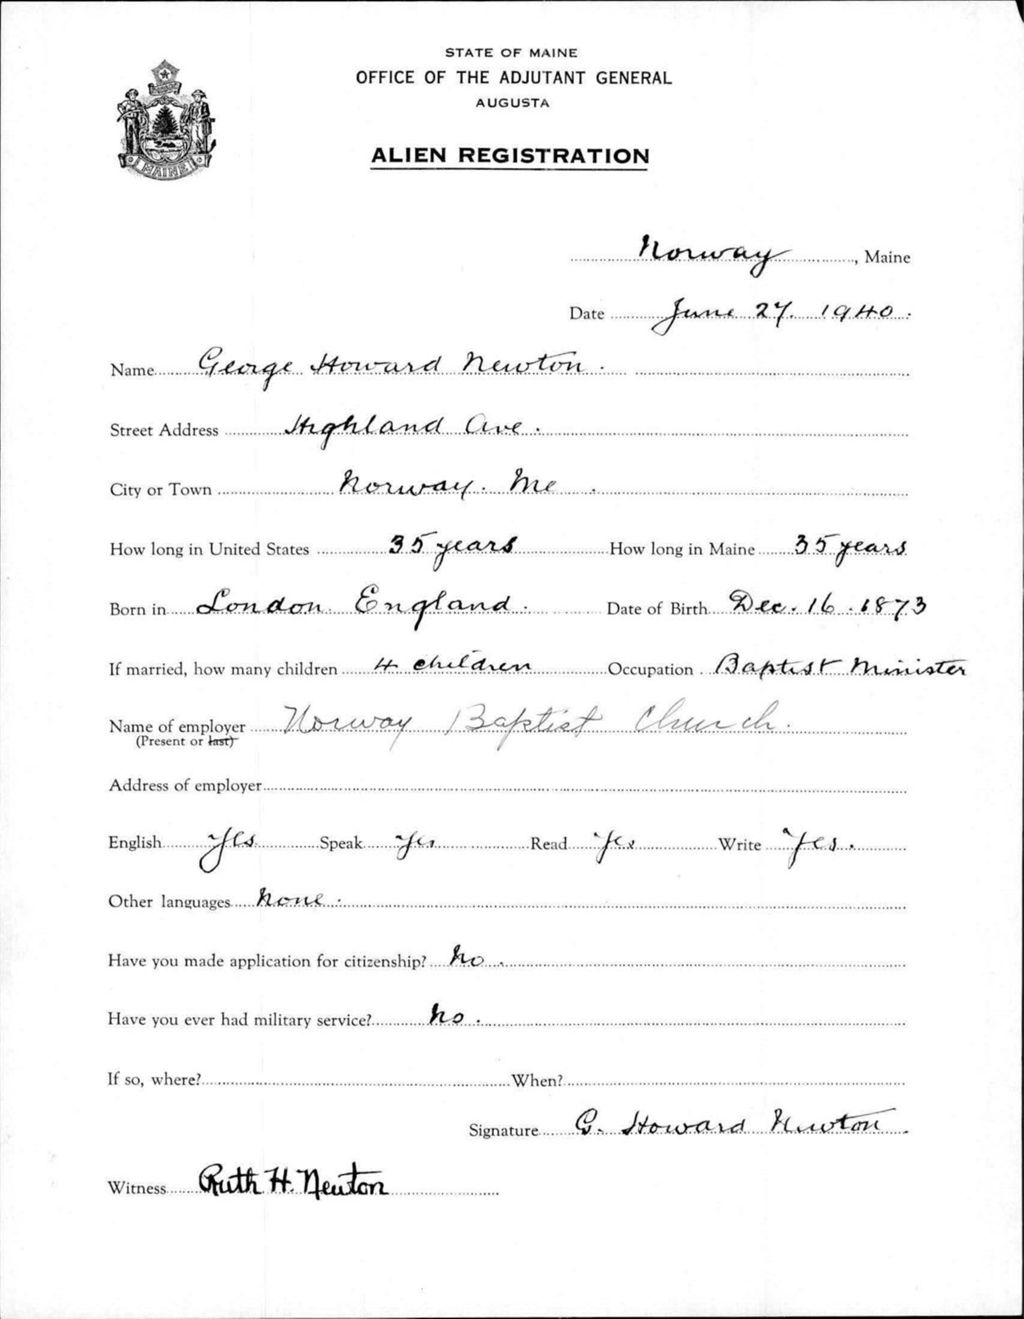 STATE OF MAINE
OFFICE OF THE ADJUTANT GENERAL
AUGUSTA
ALIEN REGISTRATION
MAINE
Norway, Maine
Date June 27. 1940.
Name George Howard Newton.
Street Address Highland Ave.
City or Town Norway. Me.
How long in United States 35 years How long in Maine 35 years
Born in London. England. Date of Birth Dec. 16. 1873
If married, how many children 4 children Occupation Baptist Minister
Name of employer Norway Baptist Church.
(Present or last)
Address of employer
English Yes Speak Yes Read Yes Write Yes.
Other languages None.
Have you made application for citizenship? No.
Have you ever had military service? No.
If so, where? When?
Signature G. Howard Newton.
Witness Ruth H. Newton